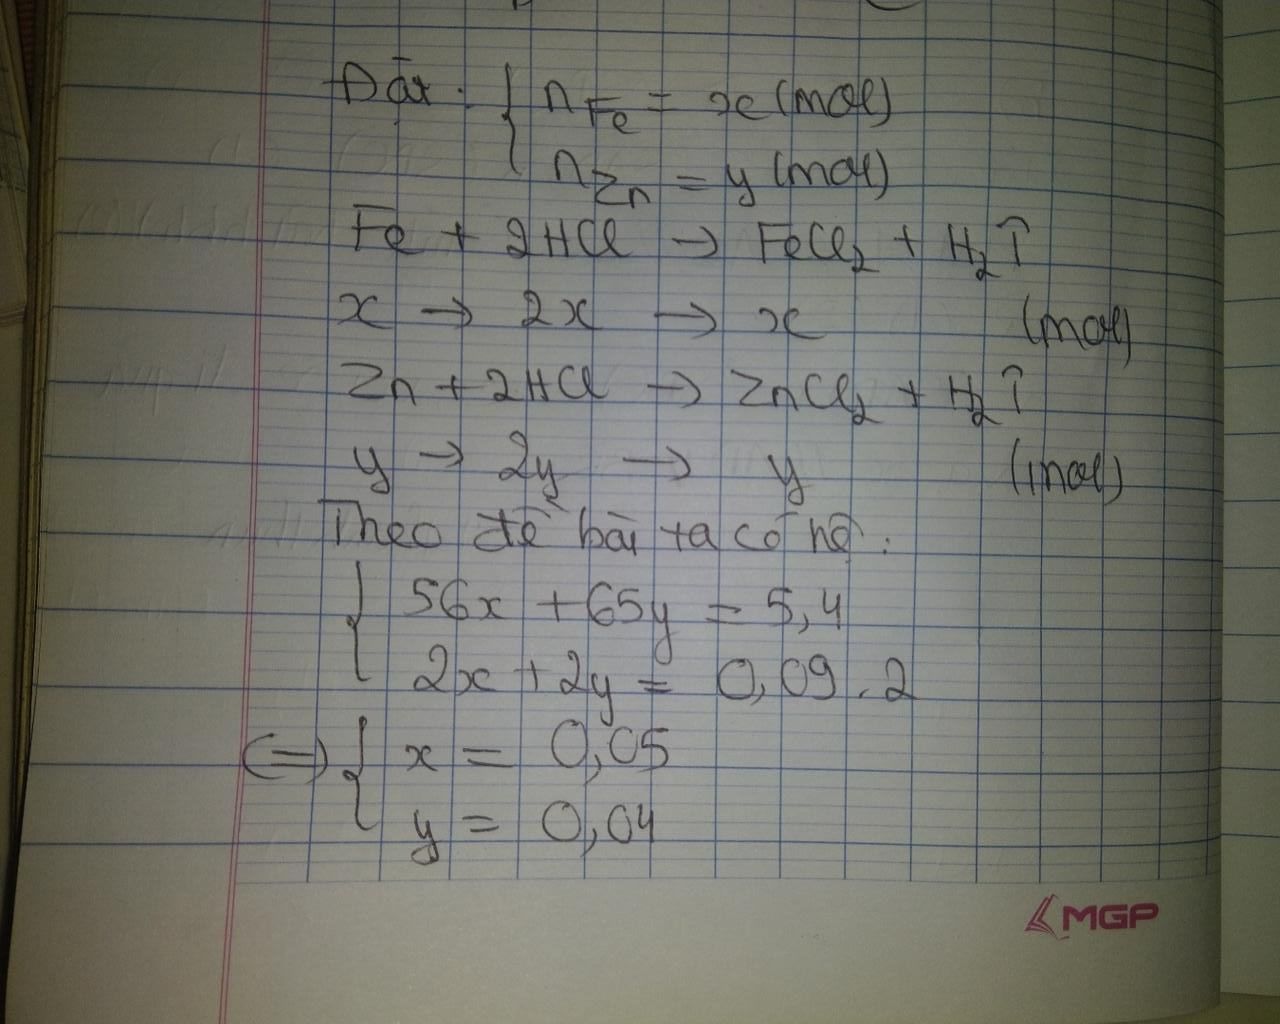 Đặt: { n Fe = x (mol)
n Zn = y (mol)
Fe + 2HCl → FeCl₂ + H₂↑
x → 2x → x (mol)
Zn + 2HCl → ZnCl₂ + H₂↑
y → 2y → y (mol)
Theo đề bài ta có hệ:
{ 56x + 65y = 5,4
2x + 2y = 0,09 . 2
(=) { x = 0,05
y = 0,04
MGP